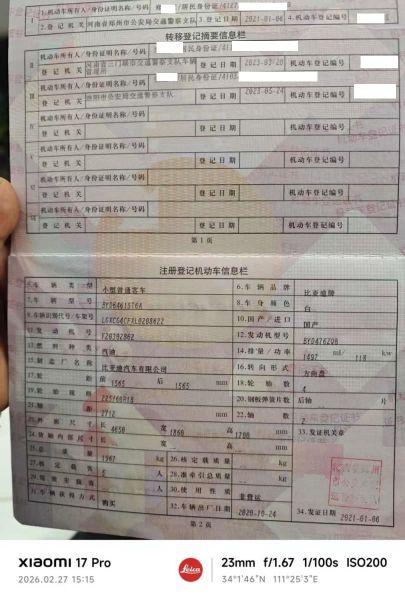 1.机动车所有人/身份证明名称/号码 居民身份证/4127
2.登记机关 河南省郑州市公安局交通警察支队 3.登记日期 2021-01-06 4.机动车登记编号
转移登记摘要信息栏
机动车所有人/身份证明名称/号码 居民身份证/411
登记机关 河南省三门峡市交通警察支队车辆管理所 登记日期 2023-03-20 机动车登记编号
机动车所有人/身份证明名称/号码 居民身份证/4103
登记机关 洛阳市公安局交通警察支队 登记日期 2023-05-24 机动车登记编号
机动车所有人/身份证明名称/号码
登记机关 登记日期 机动车登记编号
机动车所有人/身份证明名称/号码
登记机关 登记日期 机动车登记编号
机动车所有人/身份证明名称/号码
登记机关 登记日期 机动车登记编号
机动车所有人/身份证明名称/号码
登记机关 登记日期 机动车登记编号
第1页
注册登记机动车信息栏
5.车辆类型 小型普通客车 6.车辆品牌 比亚迪牌
7.车辆型号 BYD6461ST6A 8.车身颜色 白
9.车辆识别代号/车架号 10.国产/进口 国产
11.发动机号 12.发动机型号 BYD476ZQB
13.燃料种类 汽油 14.排量/功率 1497 ml/ 118 kw
15.制造厂名称 比亚迪汽车有限公司 16.转向形式 方向盘
17.轮距 前 1565 后 1565 mm 18.轮胎数 4
19.轮胎规格 225/60R18 20.钢板弹簧片数 后轴 片
21.轴距 2712 mm 22.轴数 2
23.外廓尺寸 长 4650 宽 1860 高 1700 mm 33.发证机关章
24.货箱内部尺寸 长 宽 高 mm
25.总质量 1967 kg 26.核定载质量 kg
27.核定载客 5 人 28.准牵引总质量 kg
29.驾驶室载客 人 30.使用性质 非营运
31.车辆获得方式 购买 32.车辆出厂日期 2020-10-24 34.发证日期 2021-01-06
第2页
xiaomi 17 Pro
2026.02.27 15:15
Leica
23mm f/1.67 1/100s ISO200
34°1'46"N 111°25'3"E